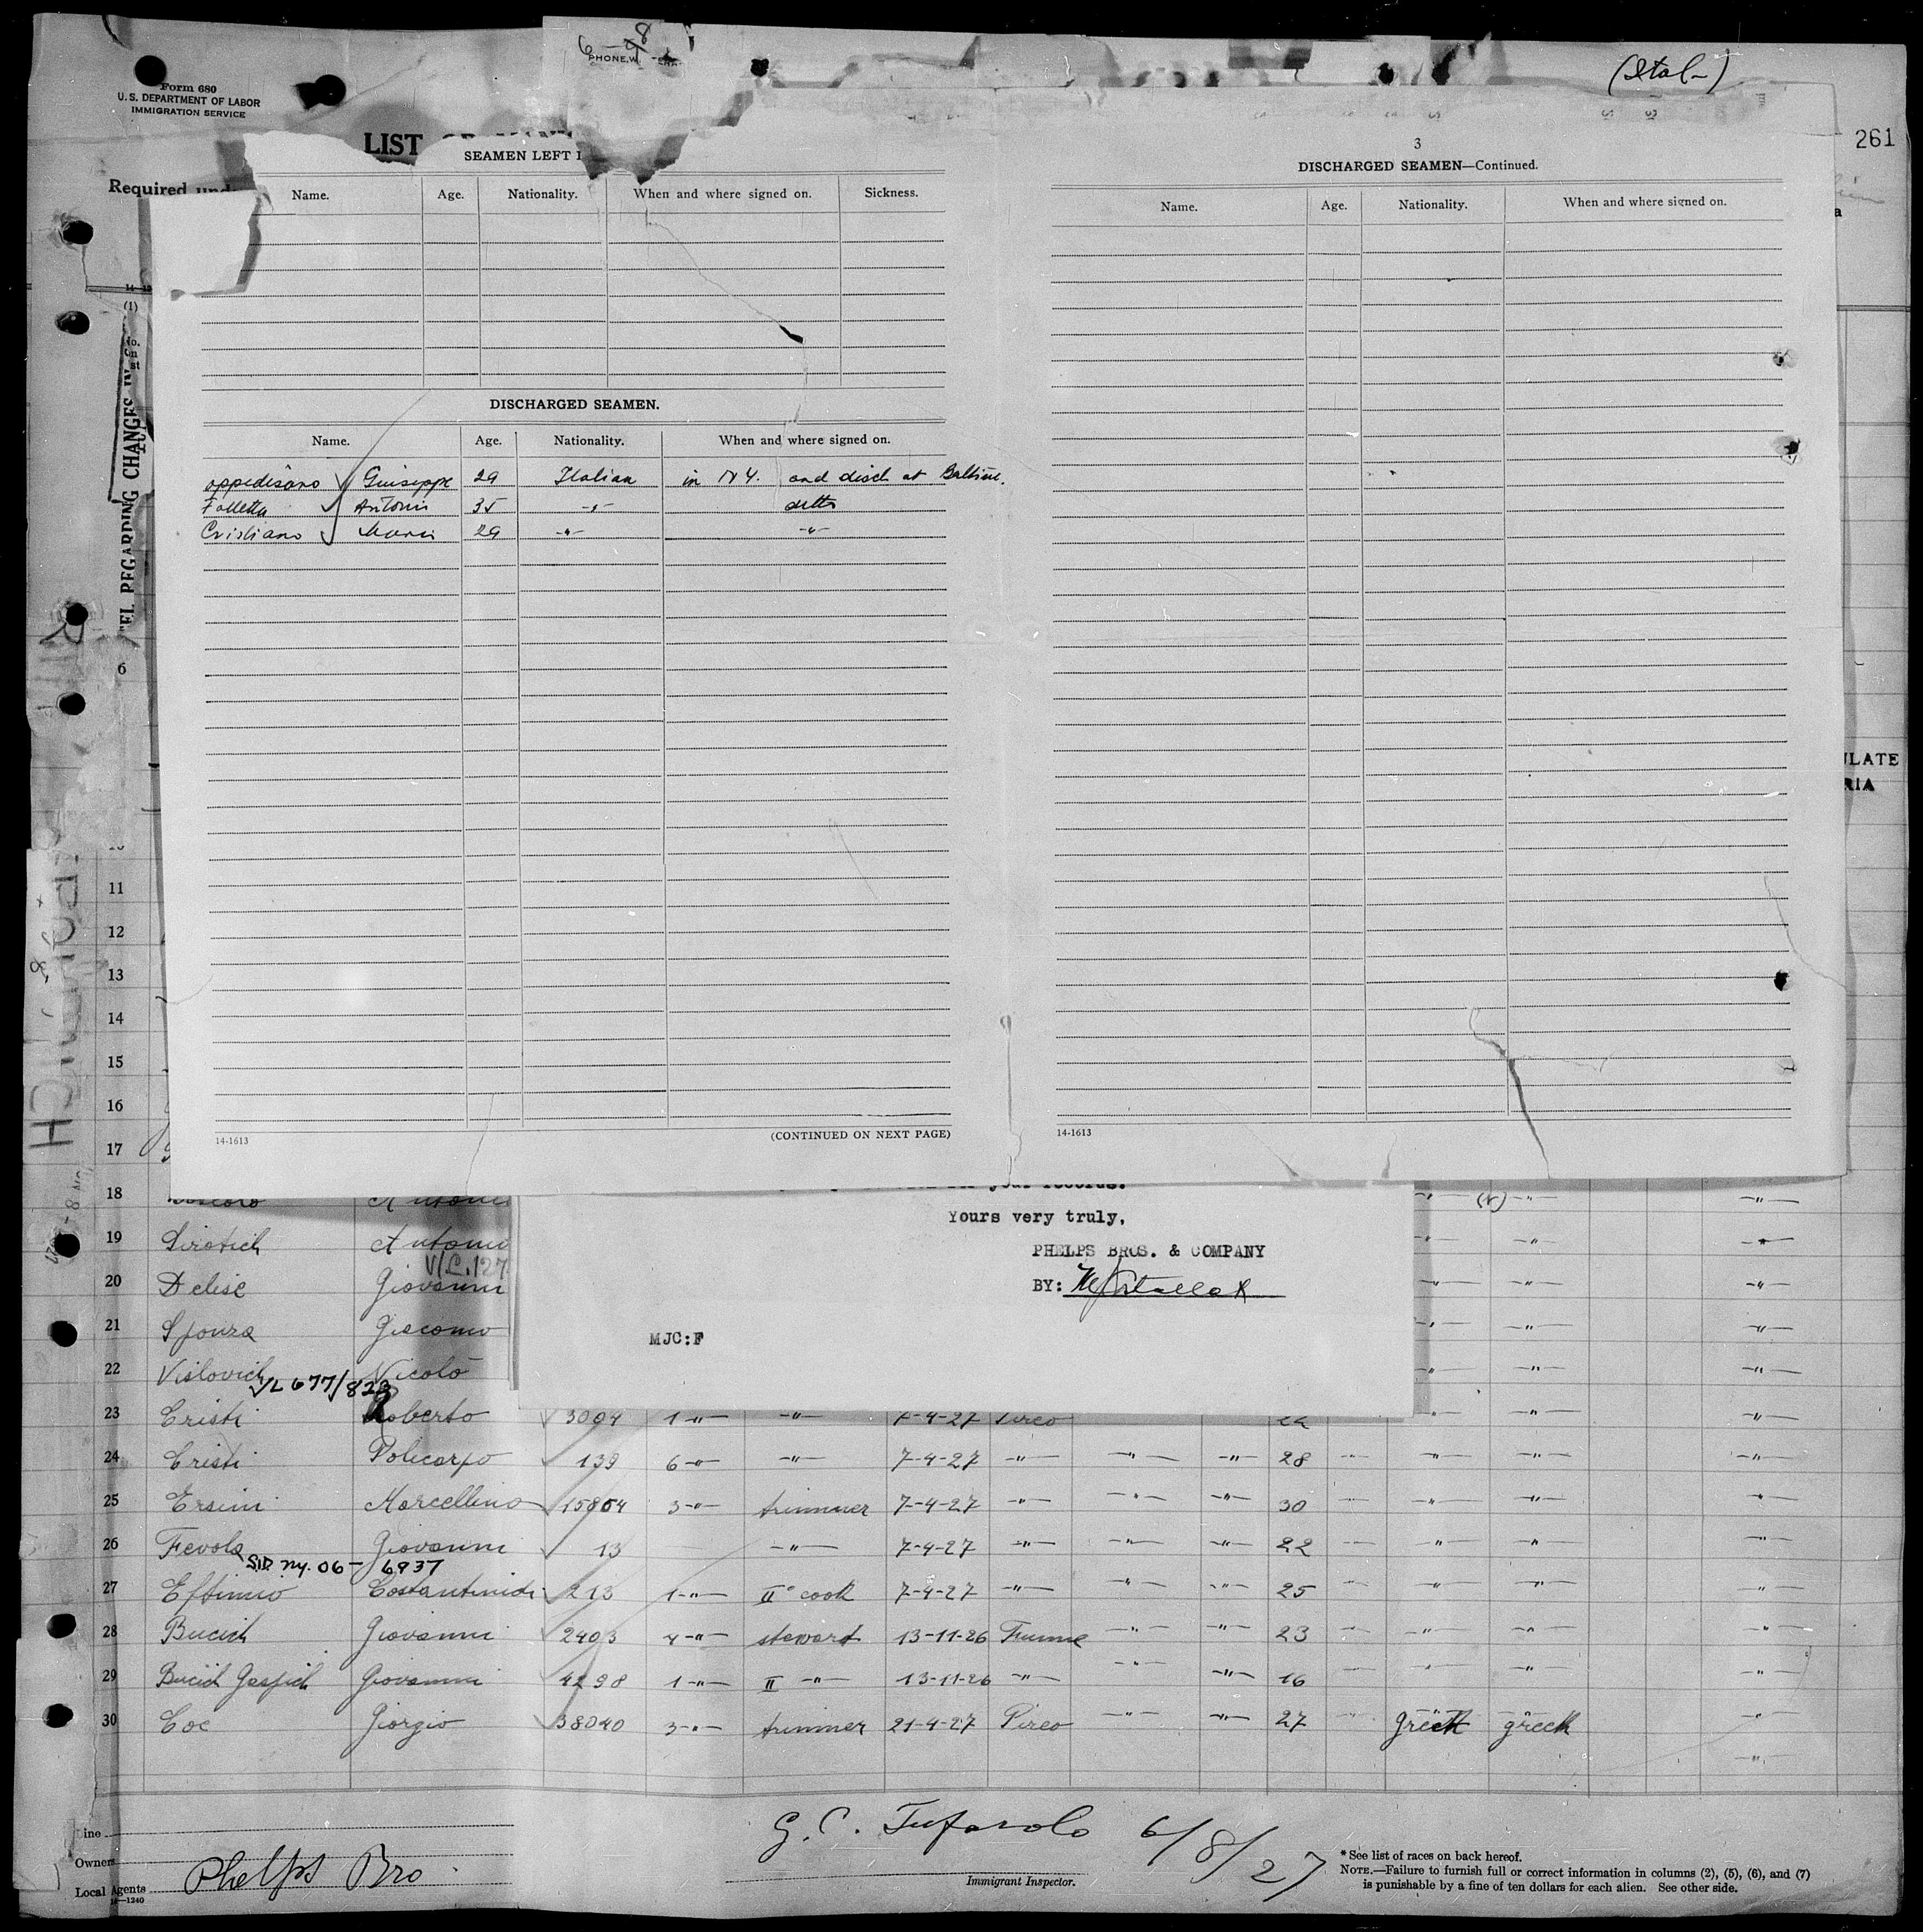 6-8
PHONE, W
(Ital-)
Form 680
U.S. DEPARTMENT OF LABOR
IMMIGRATION SERVICE
LIST
261
Required und
SEAMEN LEFT I
Name. Age. Nationality. When and where signed on. Sickness.
DISCHARGED SEAMEN.
Name. Age. Nationality. When and where signed on.
oppedisano Giuseppe 29 Italian in N Y. and disch at Baltim.
Falletta Antonio 35 -"- ditto
Cristiano 29 -"- -"-
14-1613
(CONTINUED ON NEXT PAGE)
3
DISCHARGED SEAMEN—Continued.
Name. Age. Nationality. When and where signed on.
14-1613
(1)
REGARDING CHANGES IN
ULATE
RIA
6
11
12
13
14
15
16
17
18 Antonio -"- (r) -"- -"-
19 Sirotich Antonio -"- -"- -"-
V/L.127
20 Delise Giovanni -"- -"- -"-
21 Sponza Giacomo -"- -"- -"-
22 Vislovich Nicolò -"- -"- -"-
V/L 677/823
23 Cristi Roberto 3004 1-"- -"- 7-4-27 Pireo 22 -"- -"- -"-
24 Cristi Policarpo 139 6-"- -"- 7-4-27 -"- -"- -"- 28 -"- -"- -"- -"-
25 Ersini Marcellino 15864 3-"- trimmer 7-4-27 -"- -"- -"- 30 -"- -"- -"- -"-
26 Fevola Giovanni 13 -"- 7-4-27 -"- -"- -"- 22 -"- -"- -"- -"-
S/P. ny. 06-6937
27 Eftimio Costantinidi 213 1-"- II° cook 7-4-27 -"- -"- -"- 25 -"- -"- -"- -"-
28 Bucich Giovanni 2403 4-"- steward 13-11-26 Fiume -"- -"- 23 -"- -"- -"- -"-
29 Bucich Gaspich Giovanni 4298 1-"- II -"- 13-11-26 -"- -"- -"- 16 -"- -"- -"- -"-
30 Coc Giorgio 38040 3-"- trimmer 21-4-27 Pireo -"- -"- 27 -"- greek greek -"-
-"-
your records.
Yours very truly,
PHELPS BROS. & COMPANY
BY:
MJC:F
Line
Owners
Local Agents Phelps Bro.
14—1240
G. C. Tufarolo 6/8/27
Immigrant Inspector.
* See list of races on back hereof.
NOTE.—Failure to furnish full or correct information in columns (2), (5), (6), and (7)
is punishable by a fine of ten dollars for each alien. See other side.